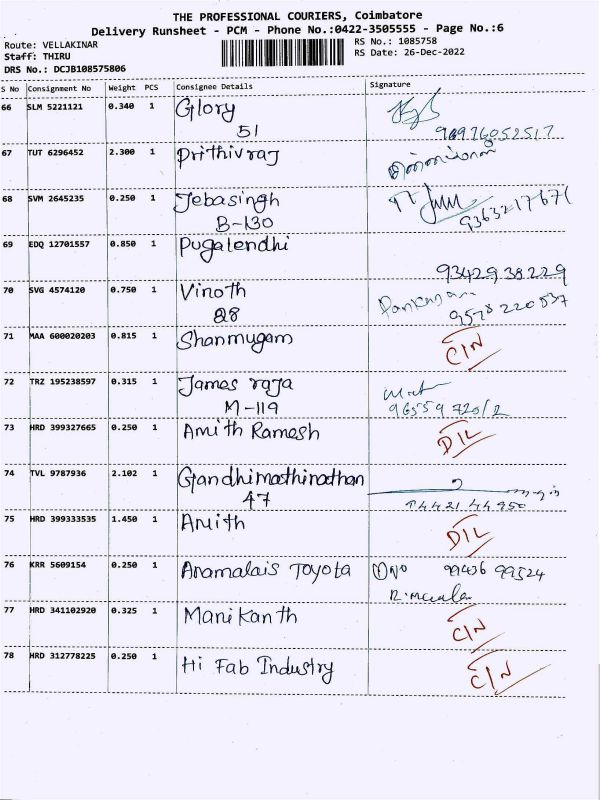 THE PROFESSIONAL COURIERS, Coimbatore
Delivery Runsheet - PCM - Phone No.:0422-3505555 - Page No.:6
Route: VELLAKINAR RS No.: 1085758
Staff: THIRU RS Date: 26-Dec-2022
DRS No.: DCJB108575806
S No Consignment No Weight PCS Consignee Details Signature
66 SLM 5221121 0.340 1 Glory
51
67 TUT 6296452 2.300 1 Prithivraj
68 SVM 2645235 0.250 1 Jebasingh
B-130 9363217671
69 EDQ 12701557 0.850 1 Pugalendhi
9342938229
70 SVG 4574120 0.750 1 Vinoth
28 9578220537
71 MAA 600020203 0.815 1 Shanmugam C/N
72 TRZ 195238597 0.315 1 James raja
M-119
73 HRD 399327665 0.250 1 Amith Ramesh D/L
74 TVL 9787936 2.102 1 Gandhimathinathan
47
75 HRD 399333535 1.450 1 Amith D/L
76 KRR 5609154 0.250 1 Anamalais Toyota 99436 99524
77 HRD 341102920 0.325 1 Manikanth C/N
78 HRD 312778225 0.250 1 Hi Fab Industry C/N